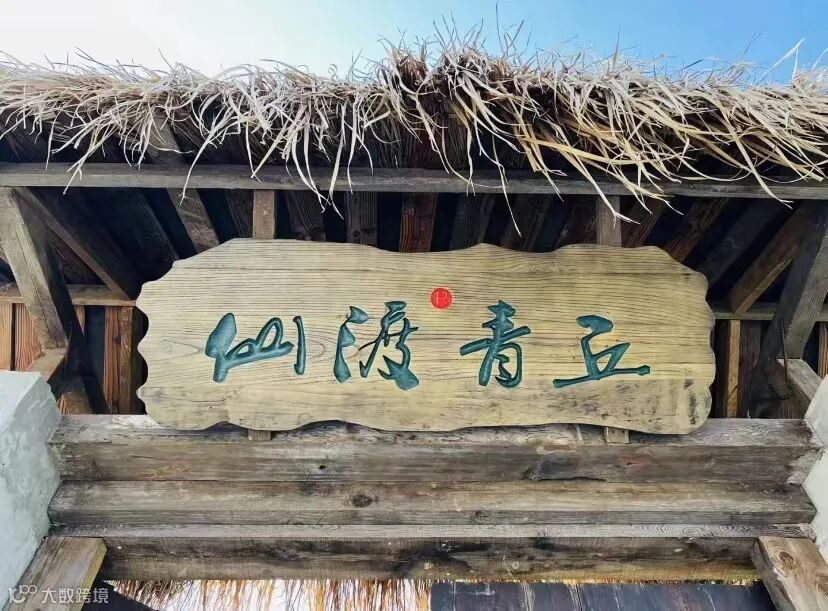 仙渡青丘
大数跨境